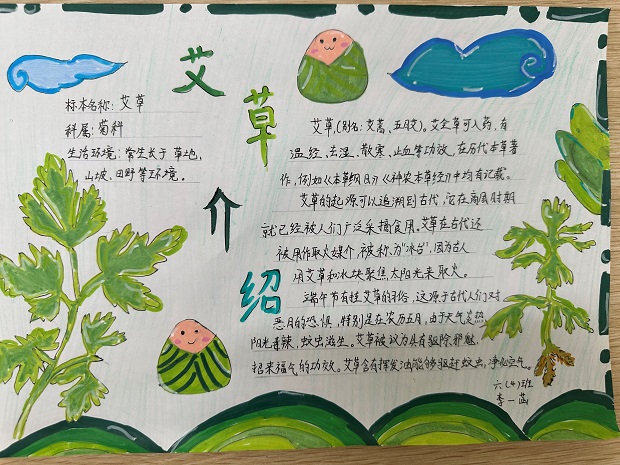 艾草介绍
标本名称：艾草
科属：菊科
生活环境：常生长于草地、
山坡、田野等环境。
艾草，（别名：艾蒿、五月艾）。艾全草可入药，有
温经、去湿、散寒、止血等功效。在历代本草著
作，例如《本草纲目》《神农本草经》中均有记载。
艾草的起源可以追溯到古代，它在商周时期
就已经被人们广泛采摘食用。艾草在古代还
被用作取火媒介，被称为“冰台”，因为古人
用艾草和冰块聚焦太阳光来取火。
端午节有挂艾草的习俗，这源于古代人们对
恶月的恐惧，特别是在农历五月，由于天气炎热
阳光毒辣、蚊虫滋生。艾草被认为具有驱除邪魅，
招来福气的功效。艾草含有挥发油能够驱赶蚊虫，净化空气。
六（4）班
李一菡